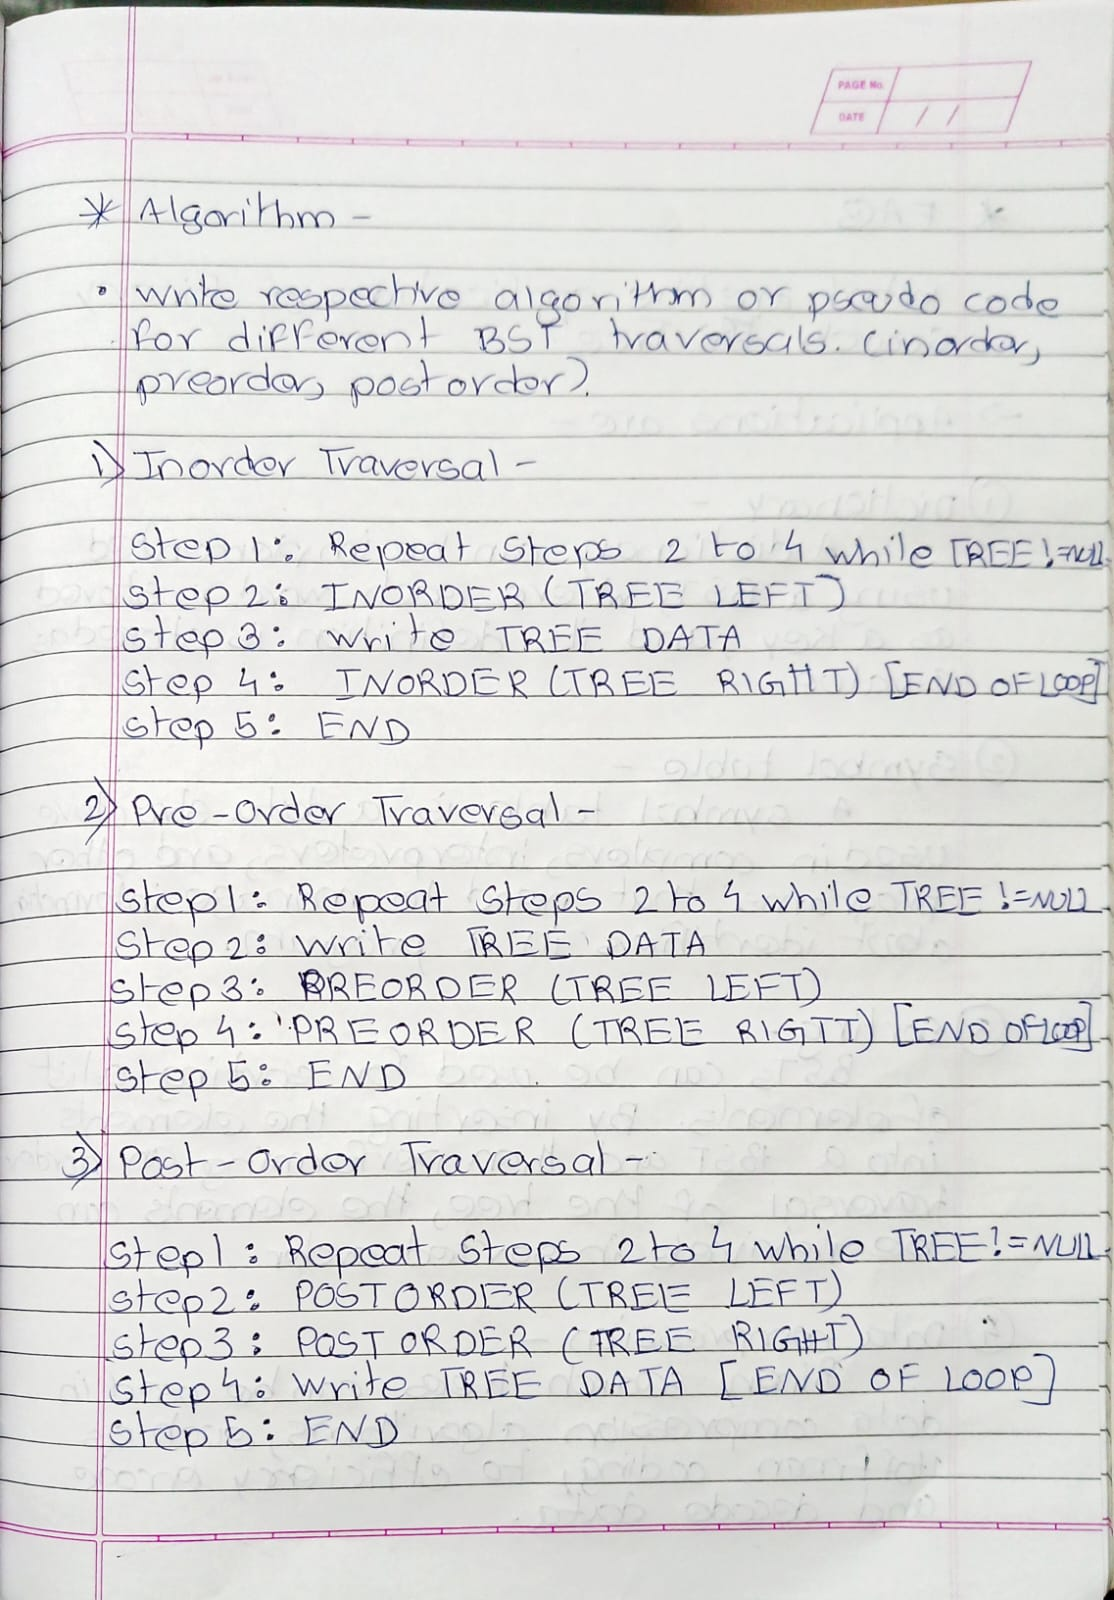 PAGE No.
DATE / /
* Algorithm -
• Write respective algorithm or pseudo code
for different BST traversals. (inorder,
preorder, postorder).
1) Inorder Traversal -
Step 1: Repeat Steps 2 to 4 while TREE != NULL
Step 2: INORDER (TREE LEFT)
Step 3: Write TREE DATA
Step 4: INORDER (TREE RIGHT) [END OF LOOP]
Step 5: END
2) Pre-Order Traversal -
Step 1: Repeat Steps 2 to 4 while TREE != NULL
Step 2: Write TREE DATA
Step 3: PREORDER (TREE LEFT)
Step 4: PREORDER (TREE RIGTT) [END OF LOOP]
Step 5: END
3) Post-Order Traversal -
Step 1: Repeat Steps 2 to 4 while TREE != NULL
Step 2: POSTORDER (TREE LEFT)
Step 3: POSTORDER (TREE RIGHT)
Step 4: Write TREE DATA [END OF LOOP]
Step 5: END